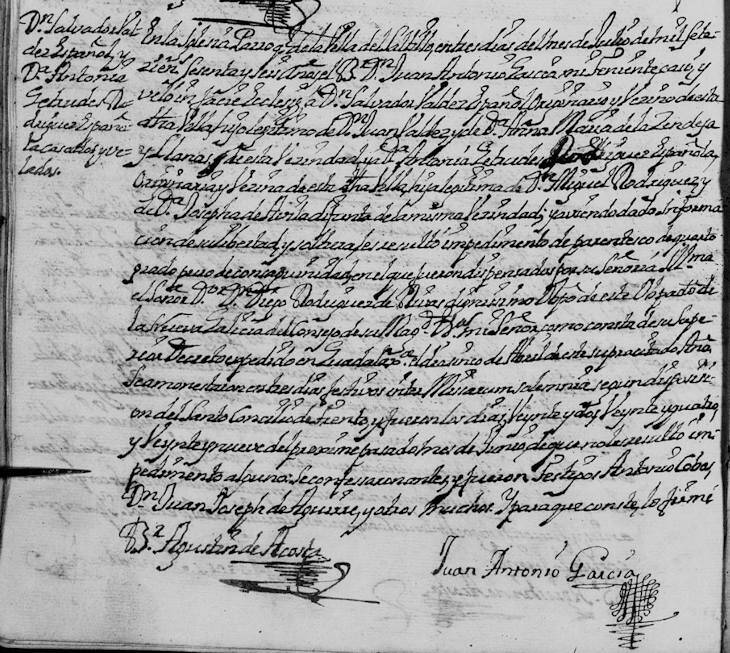 Dn. Salvador Val-
dez Español, y
Da. Antonia
Getrudes Ro-
driguez Españo-
la casados y ve-
lados.
En la Iglesia Parroql. de la Villa del Saltillo, en tres dias del mes de Julio de mil sete-
cients. sesenta y seis años, el Br. Dn. Juan Antonio Garcia mi Theniente casó, y
veló in facie Eclesiæ a Dn. Salvador Valdez Español, Originario y Vezino de esta
dha. Villa, hijo lexitimo de Dn. Juan Valdez y de Da. Anna Maria de la Zendeja
y Llanas, de esta Vezindad, y a Da. Antonia Getrudes Rodriguez Española,
Originaria y Vezina de esta dha. Villa, hija legitima de Dn. Miguel Rodriguez, y
de Da. Josepha de Avila difunta de la misma Vezindad; y aviendo dado informa-
cion de su libertad, y solteria, le resultó impedimento de parentesco de quarto
grado puro de consanguinidad, en el que fueron dispensados por su Señoria Illma.
el Señor Dor. Dn. Diego Rodriguez de Rivas dignissimo Obpo. de este Obispado de
la Nueva Galicia del Consejo de su Magd. Da. mi Señor, como consta de su Supe-
rior Decreto expedido en Guadalaxa. el dia cinco de Abril de este supracitado Año
Se amonestaron en tres dias festivos inter Missarum solemnia, segun disposici-
on del Santo Concilio de Trento, y fueron los dias Veynte y dos, Veynte y quatro,
y Veynte y nueve del proxime pasado mes de Junio, de que no le resultó im-
pedimento alguno: Se confessaron antes, y fueron Testigos Antonio Cobos
Dn. Juan Joseph de Aguirre, y otros muchos. Y para que conste, lo firmé
Br. Agustin de Acosta
Juan Antonio Garcia